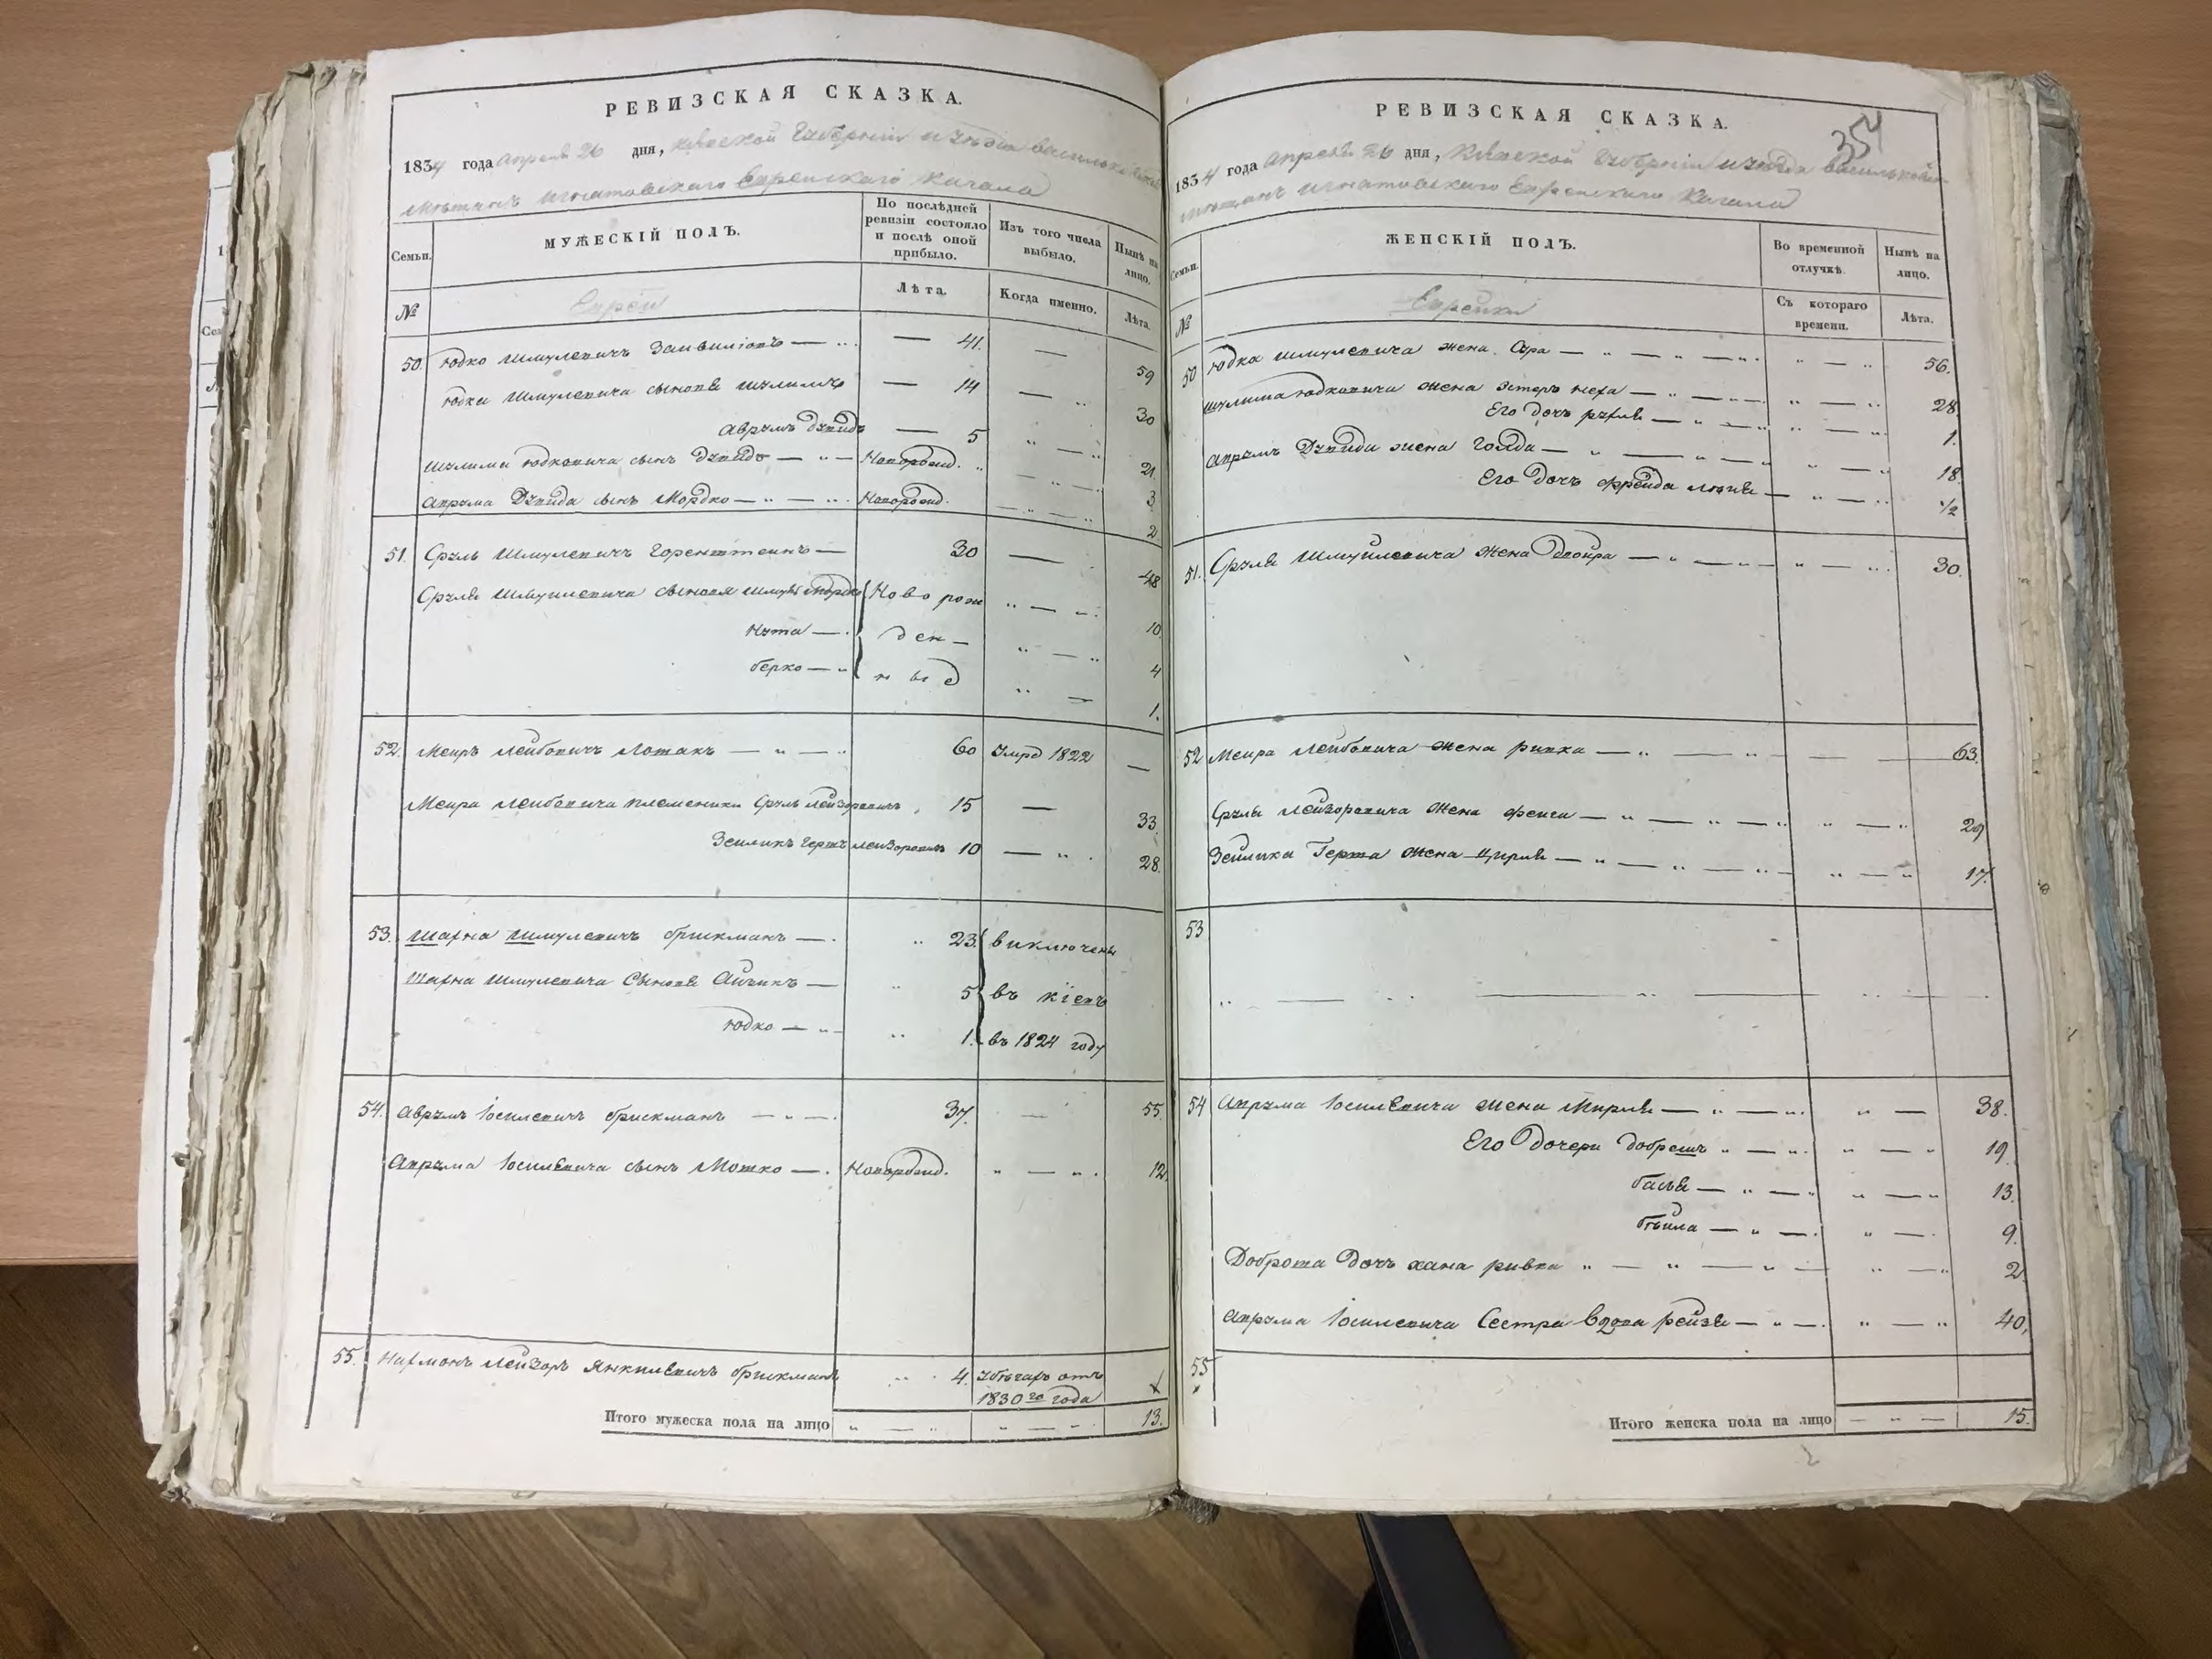 РЕВИЗСКАЯ СКАЗКА.
1834 года апреля 26 дня, Киевской Губернии и уезда Васильковского
мещанъ Игнатовского Еврейского Кагала
Семьи.
МУЖЕСКІЙ ПОЛЪ.
По послѣдней ревизіи состояло и послѣ оной прибыло.
Изъ того числа выбыло.
Нынѣ на лицо.
№
Евреи
Лѣта.
Когда именно.
Лѣта.
50. Юдко Шмулевичъ — 41. — 59
Юдки Шмулевича сыновя Шулимъ — 14 — 30
Аврумъ Дувидъ — 5 — 21
Шулима Юдковича сынъ Дувидъ — Новорожд. — 3
Аврума Дувида сынъ Мордко — Новорожд. — 2
51. Сруль Шмулевичъ Горенштеинъ — 30 — 48
Сруля Шмуилевича сыновя Шмуль Мордко Ново рож — 10.
Нута — ден — 4
Берко — ныѣ — 1.
52. Меиръ Лейбовичъ Лотакъ — 60 Умре 1822 —
Меира Лейбовича племеники Сруль Лейзоровичъ, 15 — 33
Зейликъ Герть Лейзоровичъ 10 — 28.
53. Шахна Шмулевичъ Брискманъ — 23. виключены
Шахна Шмулевича Сыновя Айзикъ — 5 въ кіевъ
Юдко — 1. въ 1824 году
54. Аврумъ Іосилевичъ Брискманъ — 37. — 55.
Аврума Іосилевича сынъ Мошко — Новорожд. — 12.
55. Нахманъ Лейзоръ Янкилевичъ Брискманъ 4. убѣгаръ отъ
1830го года
Итого мужеска пола на лицо — 13.
354
РЕВИЗСКАЯ СКАЗКА.
1834 года апреля 26 дня, Киевской Губернии и уезда Васильковского
мещанъ Игнатовского Еврейского Кагала
Семьи.
ЖЕНСКІЙ ПОЛЪ.
Во временной отлучкѣ.
Нынѣ на лицо.
№
Еврейки
Съ котораго времени.
Лѣта.
50 Юдка Шмулевича жена Сура — 56.
Шулима Юдковича жена Эстеръ Неха — 28
Его дочъ Рухля — 1.
Аврумъ Дувида жена Голда — 18.
Его Дочъ Фрейда — 1/2
51. Сруля Шмуилевича жена Двойра — 30.
52 Меира Лейбовича жена Ривка — 63.
Сруля Лейзоровича жена Фейги — 29
Зейлика Герта жена Цирля — 17.
53
54 Аврума Іосилевича жена Мирля — 38.
Его Дочери Добришъ — 19.
Басья — 13.
Бейла — 9.
Доброша Дочъ Хана Ривка — 2.
Аврума Іосилевича Сестра Вдова Рейзя — 40.
55
Итого женска пола на лицо — 15.